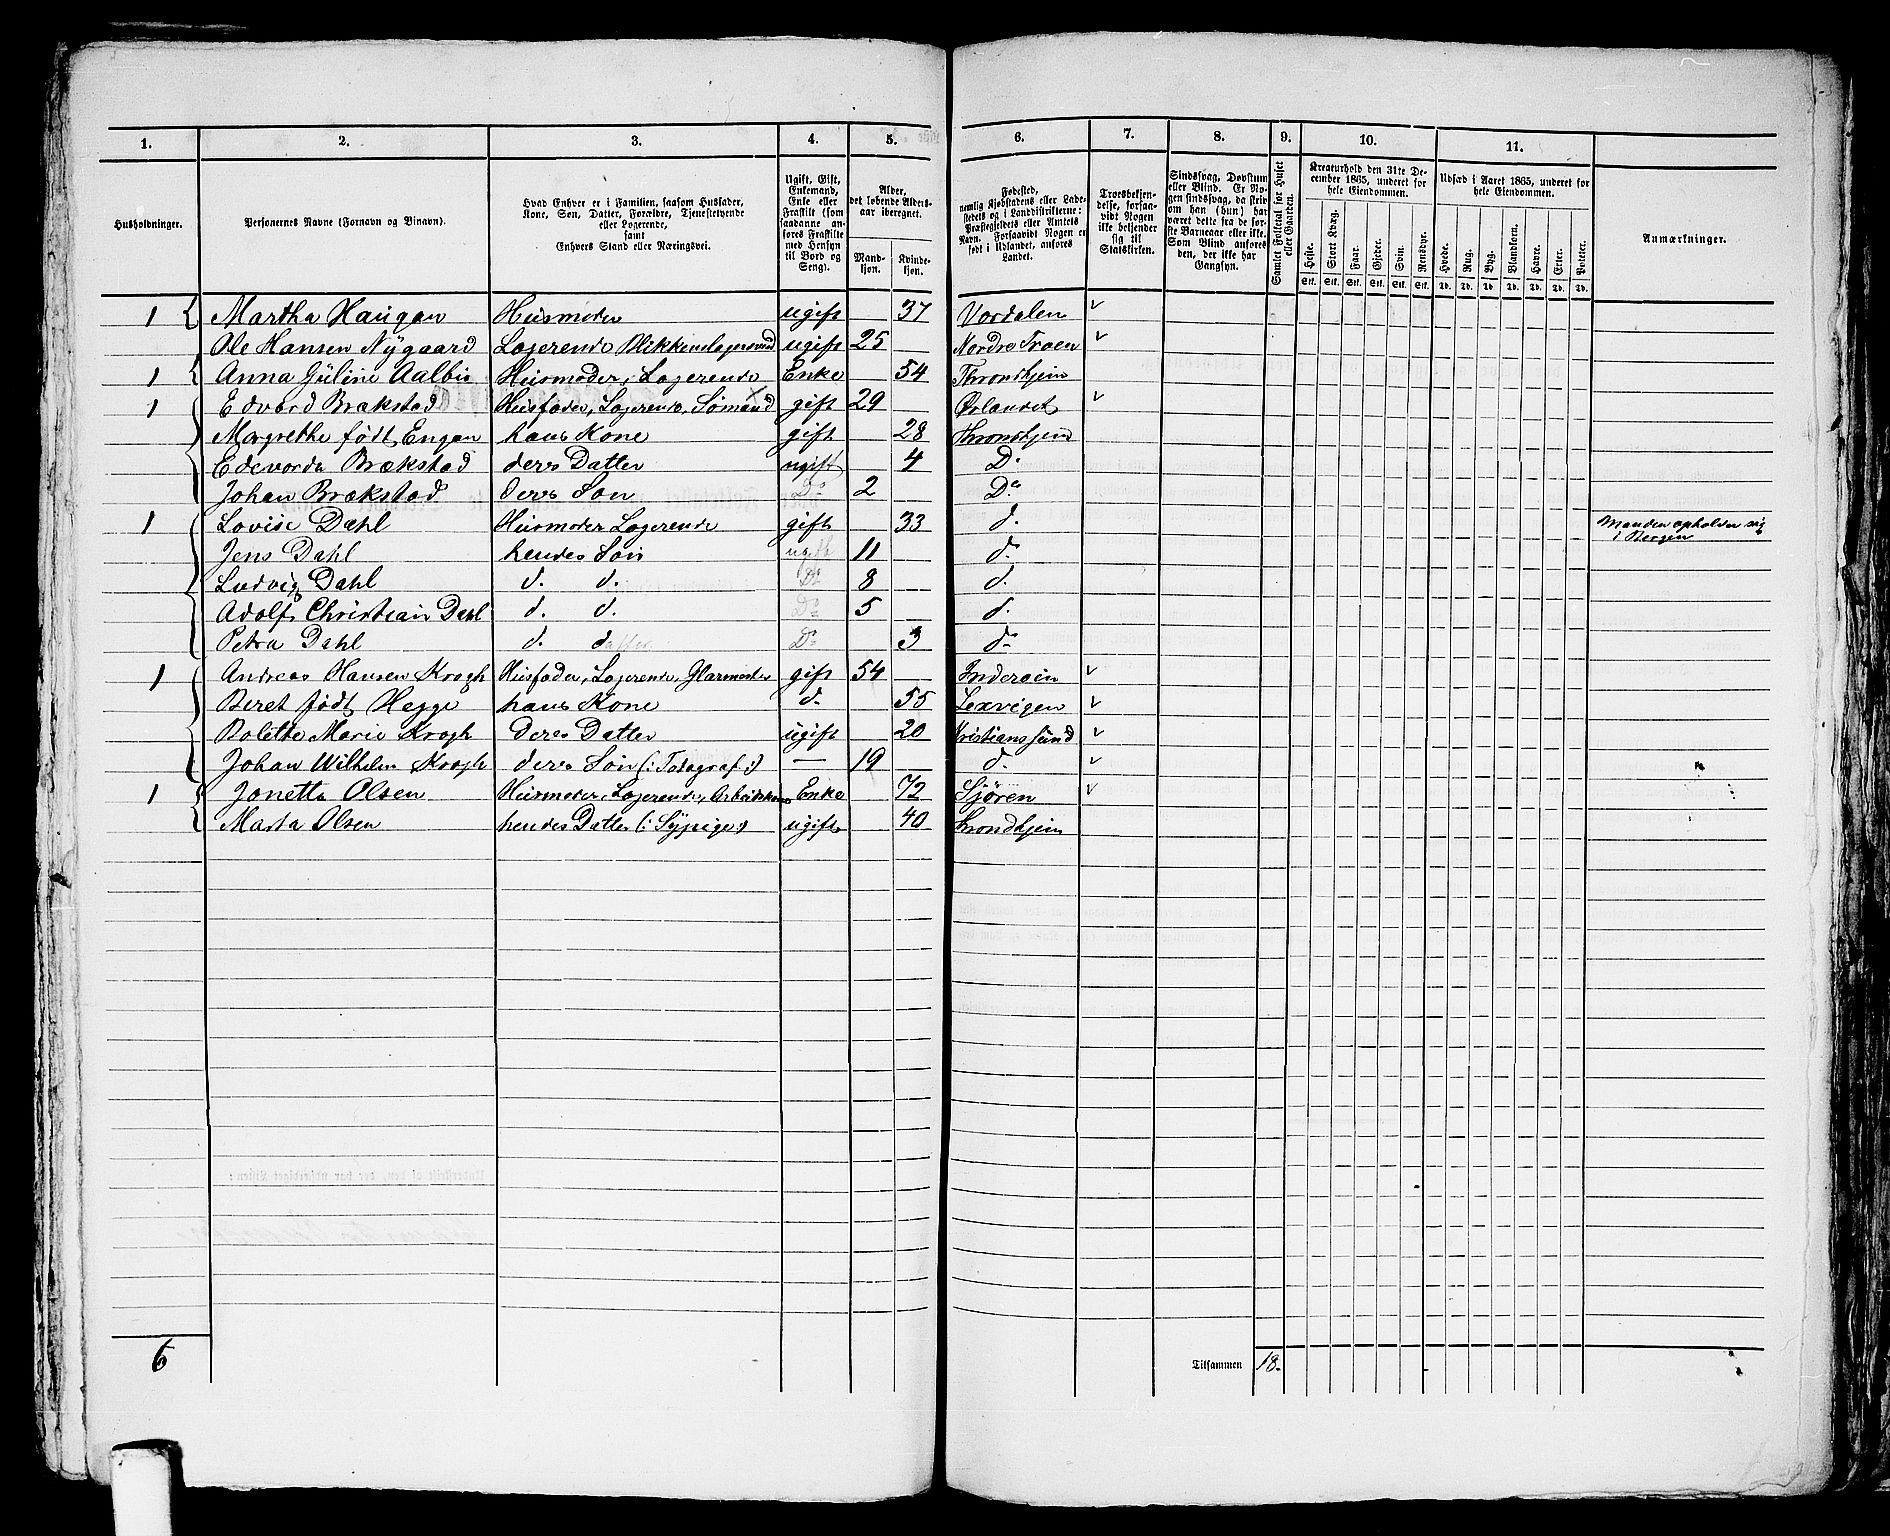 1. 2. 3. 4. 5. 6. 7. 8. 9. 10. 11.
Husholdninger.
Personernes Navne (Fornavn og Binavn).
Hvad Enhver er i Familien, saasom Husfader,
Kone, Søn, Datter, Forældre, Tjenestetyende
eller Logerende,
samt
Enhvers Stand eller Næringsvei.
Ugift, Gift,
Enkemand,
Enke eller
Fraskilt (som
saadanne an-
føres Fraskilte
med Hensyn
til Bord og
Seng).
Alder,
det løbende Alders-
aar iberegnet.
Mand-
kjøn.
Kvinde-
kjøn.
Fødested,
nemlig Kjøbstadens eller Lade-
stedets og i Landdistrikterne:
Præstegjeldets eller Amtets
Navn. Forsaavidt Nogen er
født i Udlandet, anføres
Landet.
Troesbekjen-
delse, forsaa-
vidt Nogen
ikke bekjender
sig til
Statskirken.
Sindssvag, Døvstum
eller Blind. Er No-
gen sindssvag, da skriv
om han (hun) har
været dette fra de før-
ste Barneaar eller ikke.
Som Blind anføres
den, der ikke har
Gangsyn.
Samlet Folketal for Huset
eller Gaarden.
Kreaturhold den 31te De-
cember 1865, underet for
hele Eiendommen.
Heste. Stort Kvæg. Faar. Gjeder. Svin. Rensdyr.
Stk. Stk. Stk. Stk. Stk. Stk.
Udsæd i Aaret 1865, underet for
hele Eiendommen.
Hvede. Rug. Byg. Blandkorn. Havre. Erter. Poteter.
Td. Td. Td. Td. Td. Td. Td.
Anmærkninger.
1 Martha Haugan Husmoder ugift 37 Værdalen
Ole Hansen Nygaard Logerende Blikkenslagersvend ugift 25 Nordre Froen
1 Anna Juline Aalbu Husmoder, Logerende Enke 54 Throndhjem
1 Edvard Brækstad Husfader, Logerende, Sømand gift 29 Ørlandet
Margrethe født Engan hans Kone gift 28 Throndhjem
Edevarda Brækstad deres Datter ugift 4 Do
Johan Brækstad deres Søn Do 2 Do
1 Lovise Dahl Husmoder Logerende gift 33 d. Manden opholder sig
i Bergen
Jens Dahl hendes Søn ugift 11 d.
Ludvig Dahl d. d. Do 8 d.
Adolf Christian Dahl d. d. Do 5 d.
Petra Dahl d. datter Do 3 d.
1 Andreas Hansen Krogh Husfader, Logerende, Glarmester gift 54 Inderøen
Beret født Hegge hans Kone d. 55 Lexvigen
Bolette Marie Krogh Deres Datter ugift 20 Kristianssund
Johan Wilhelm Krogh deres Søn (: Fotograf :) — 19 d.
1 Jonetta Olsen Husmoder, Logerende, Arbeidskone Enke 72 Stjøren
Marta Olsen hendes Datter (: Sypige :) ugift 40 Trondhjem
6
Tilsammen 18.